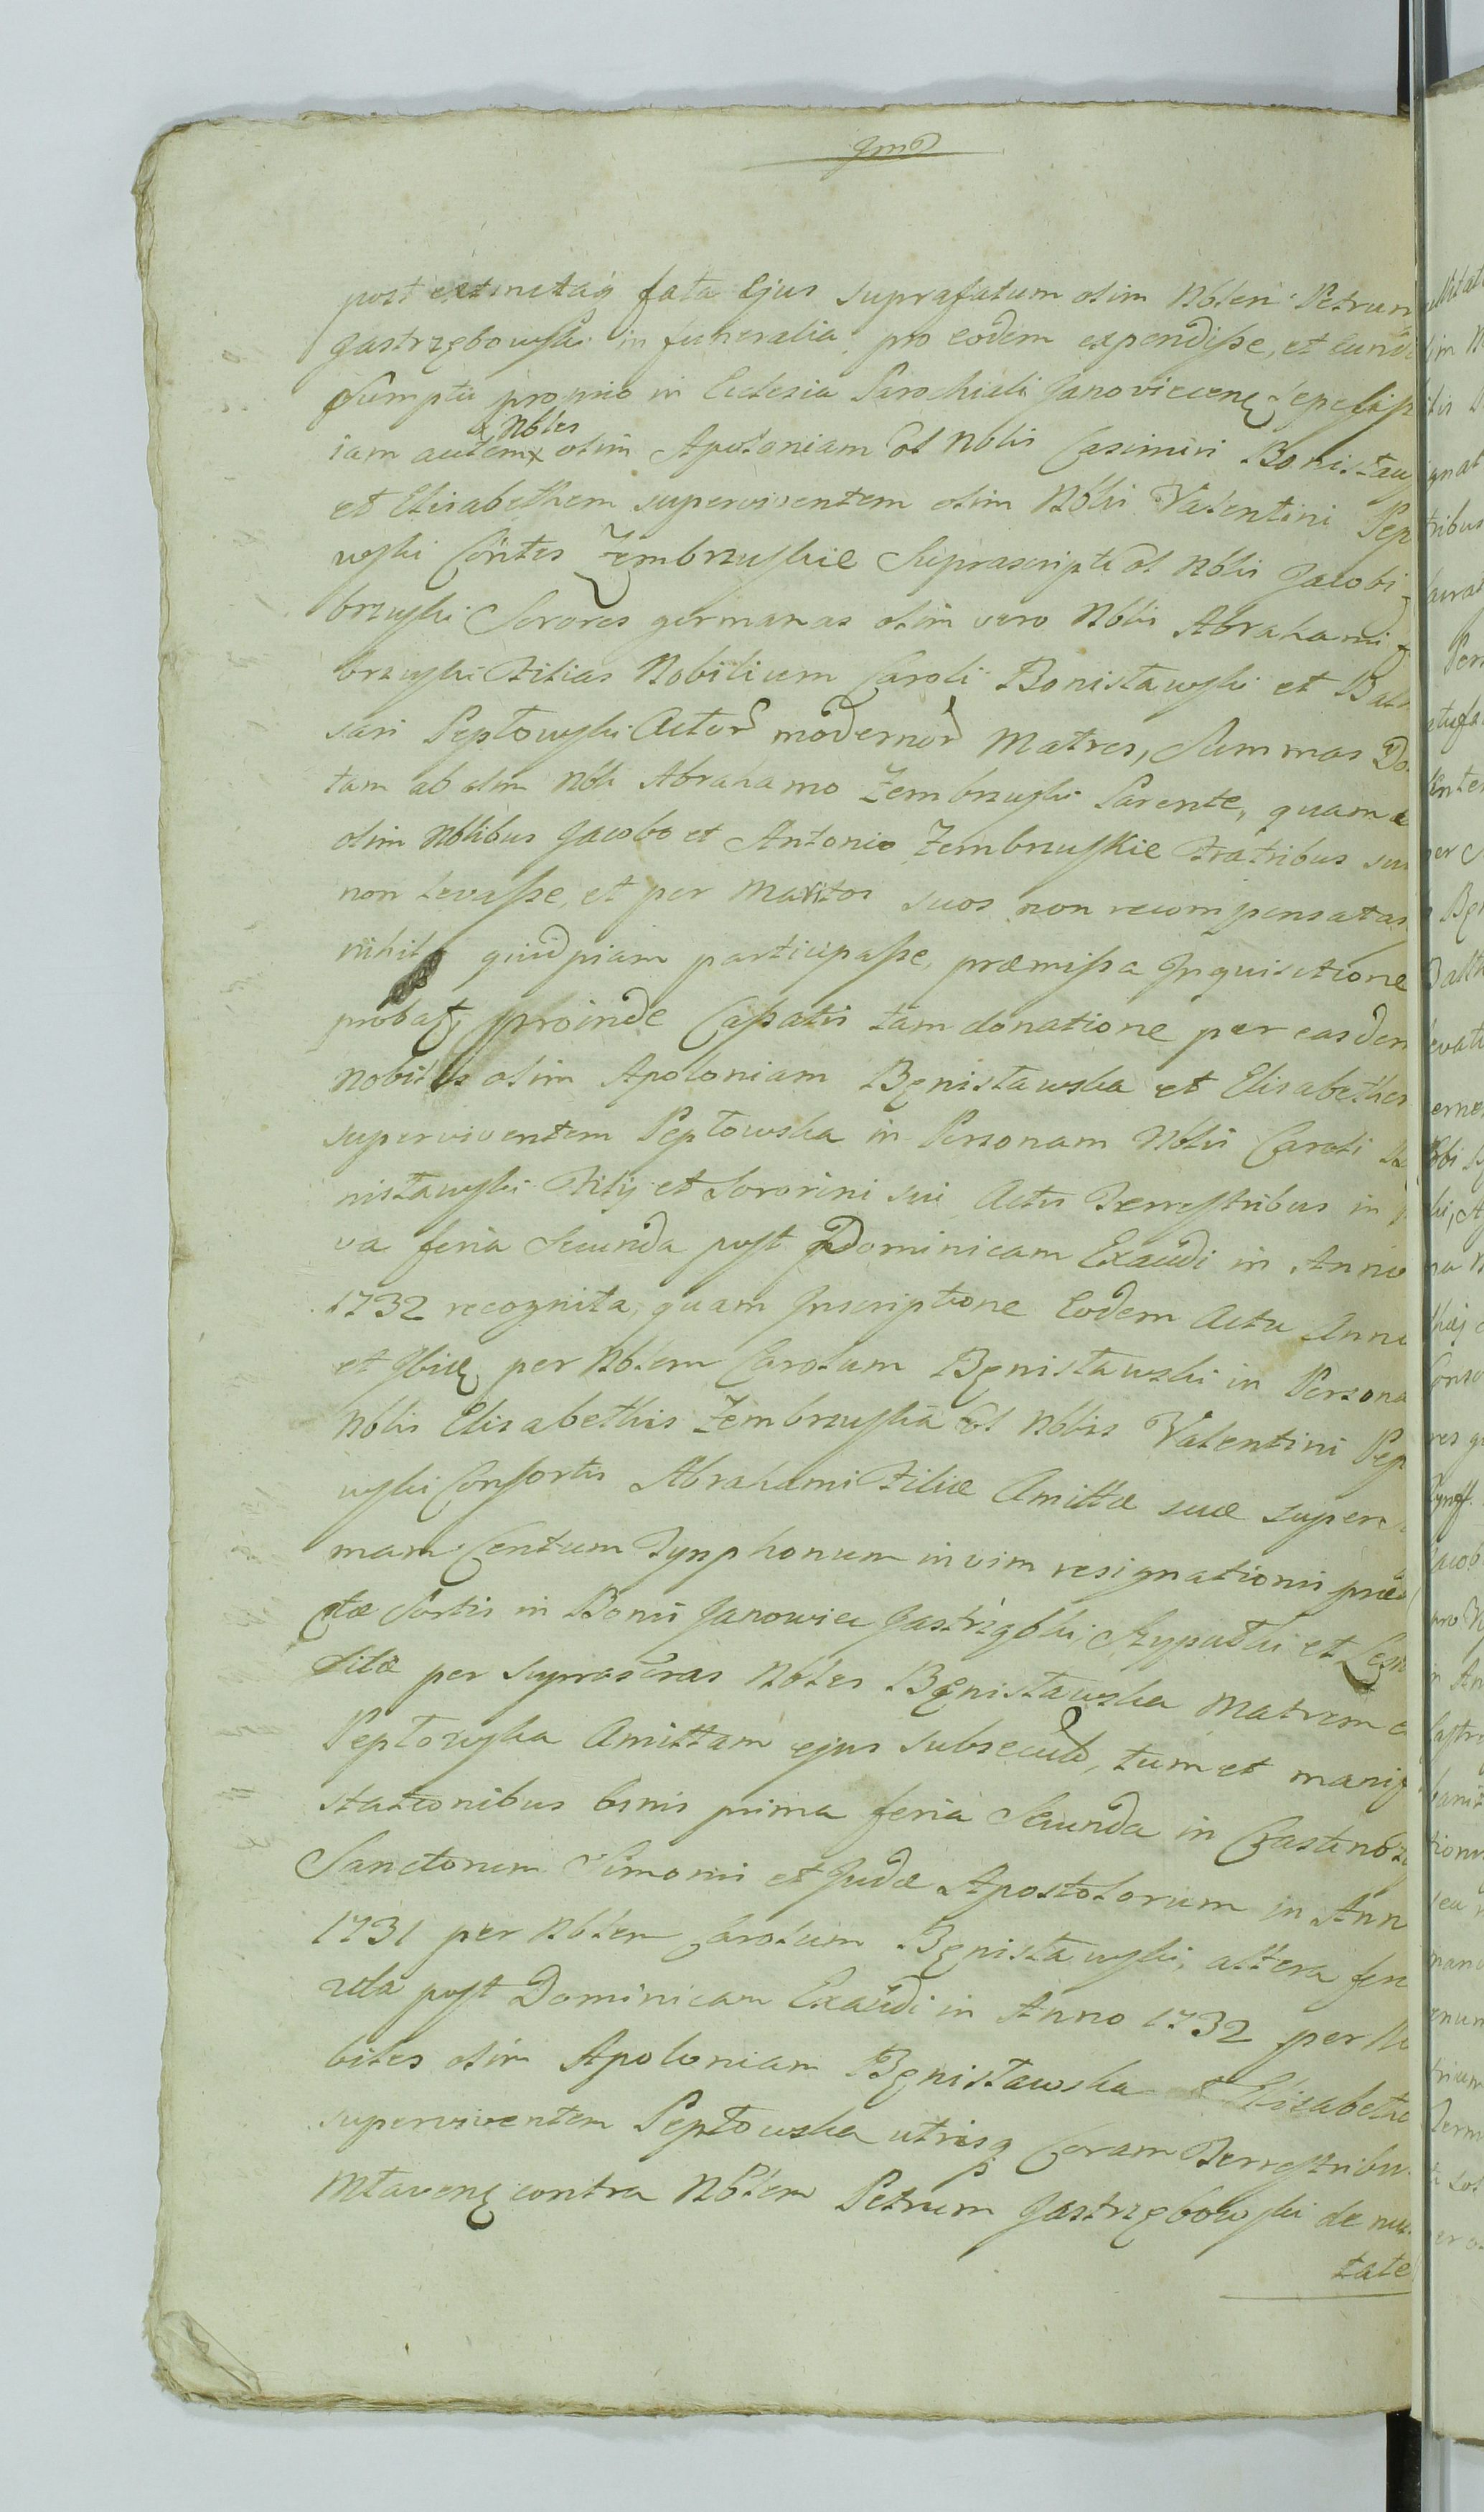 post extinctaq fata Ejus suprafatum olim Nblem Petrum
Jastrzębowski in funeralia pro Eodem expendisse, et Eund
Sumptu proprio in Eclesia Parochiali Janoviecenę sepelisse
Nbles
iam autem x olim Apoloniam ol Nblis Casimiri Bonisław
et Elisabetham superviventem olim Nblis Valentini Pep
wski Contes Zembrzuskie Suprascripti ol Nblis Jacobi Z
brzuski Sorores germanas olim vero Nblis Abrahami Z
brzuski Filias Nobilium Caroli Bonisławski et Balt
sari Pepłowski Actor modernor Matres, Summas Do
tam ab olim Nbli Abrahamo Zembrzuski Parente, quam a
olim Nblibus Jacobo et Antonio Zembrzuskie Fratribus sui
non levasse, et per Maritos suos non recompensatas
nihil quidpiam participasse, præmissa Inquisitione
probat, proinde Cassatis tam donatione per easdem
Nobiles olim Apoloniam Bęnisławska et Elisabethem
superviventem Pepłowska in Personam Nblis Caroli
nisławski Filij et Sororini sui Actis Terrestribus in
va feria Secunda post Dominicam Exaudi in Anno
1732 recognita, quam Inscriptione Eodem Actu Anno
et Ibidę per Nblem Carolum Bęnisławski in Persona
Nblis Elisabethis Zembrzuska ol Nblis Valentini Pep
wski Consortis Abrahami Filiæ Amittæ suæ super
mam Centum Tynphonum in vim resignationis præd
ctæ Sortis in Bonis Janowiec Jastrząbki, Szypułki et Leśn
sitæ per suprascras Nbles Bęnisławska Matrem e
Pepłowska Amittam ejus subsecut, tum et manif
stationibus binis prima feria Secunda in Crastino
Sanctorum Simonis et Judæ Apostolorum in Ann
1731 per Nblem Carolum Bęnisławski, altera feria
2da post Dominicam Exaudi in Anno 1732 per No
biles olim Apoloniam Bęnisławska et Elisabeth
superviventem Pepłowska utrisq Coram Terrestribu
Mlavenę contra Nblem Petrum Jastrzębowski de nul
tate